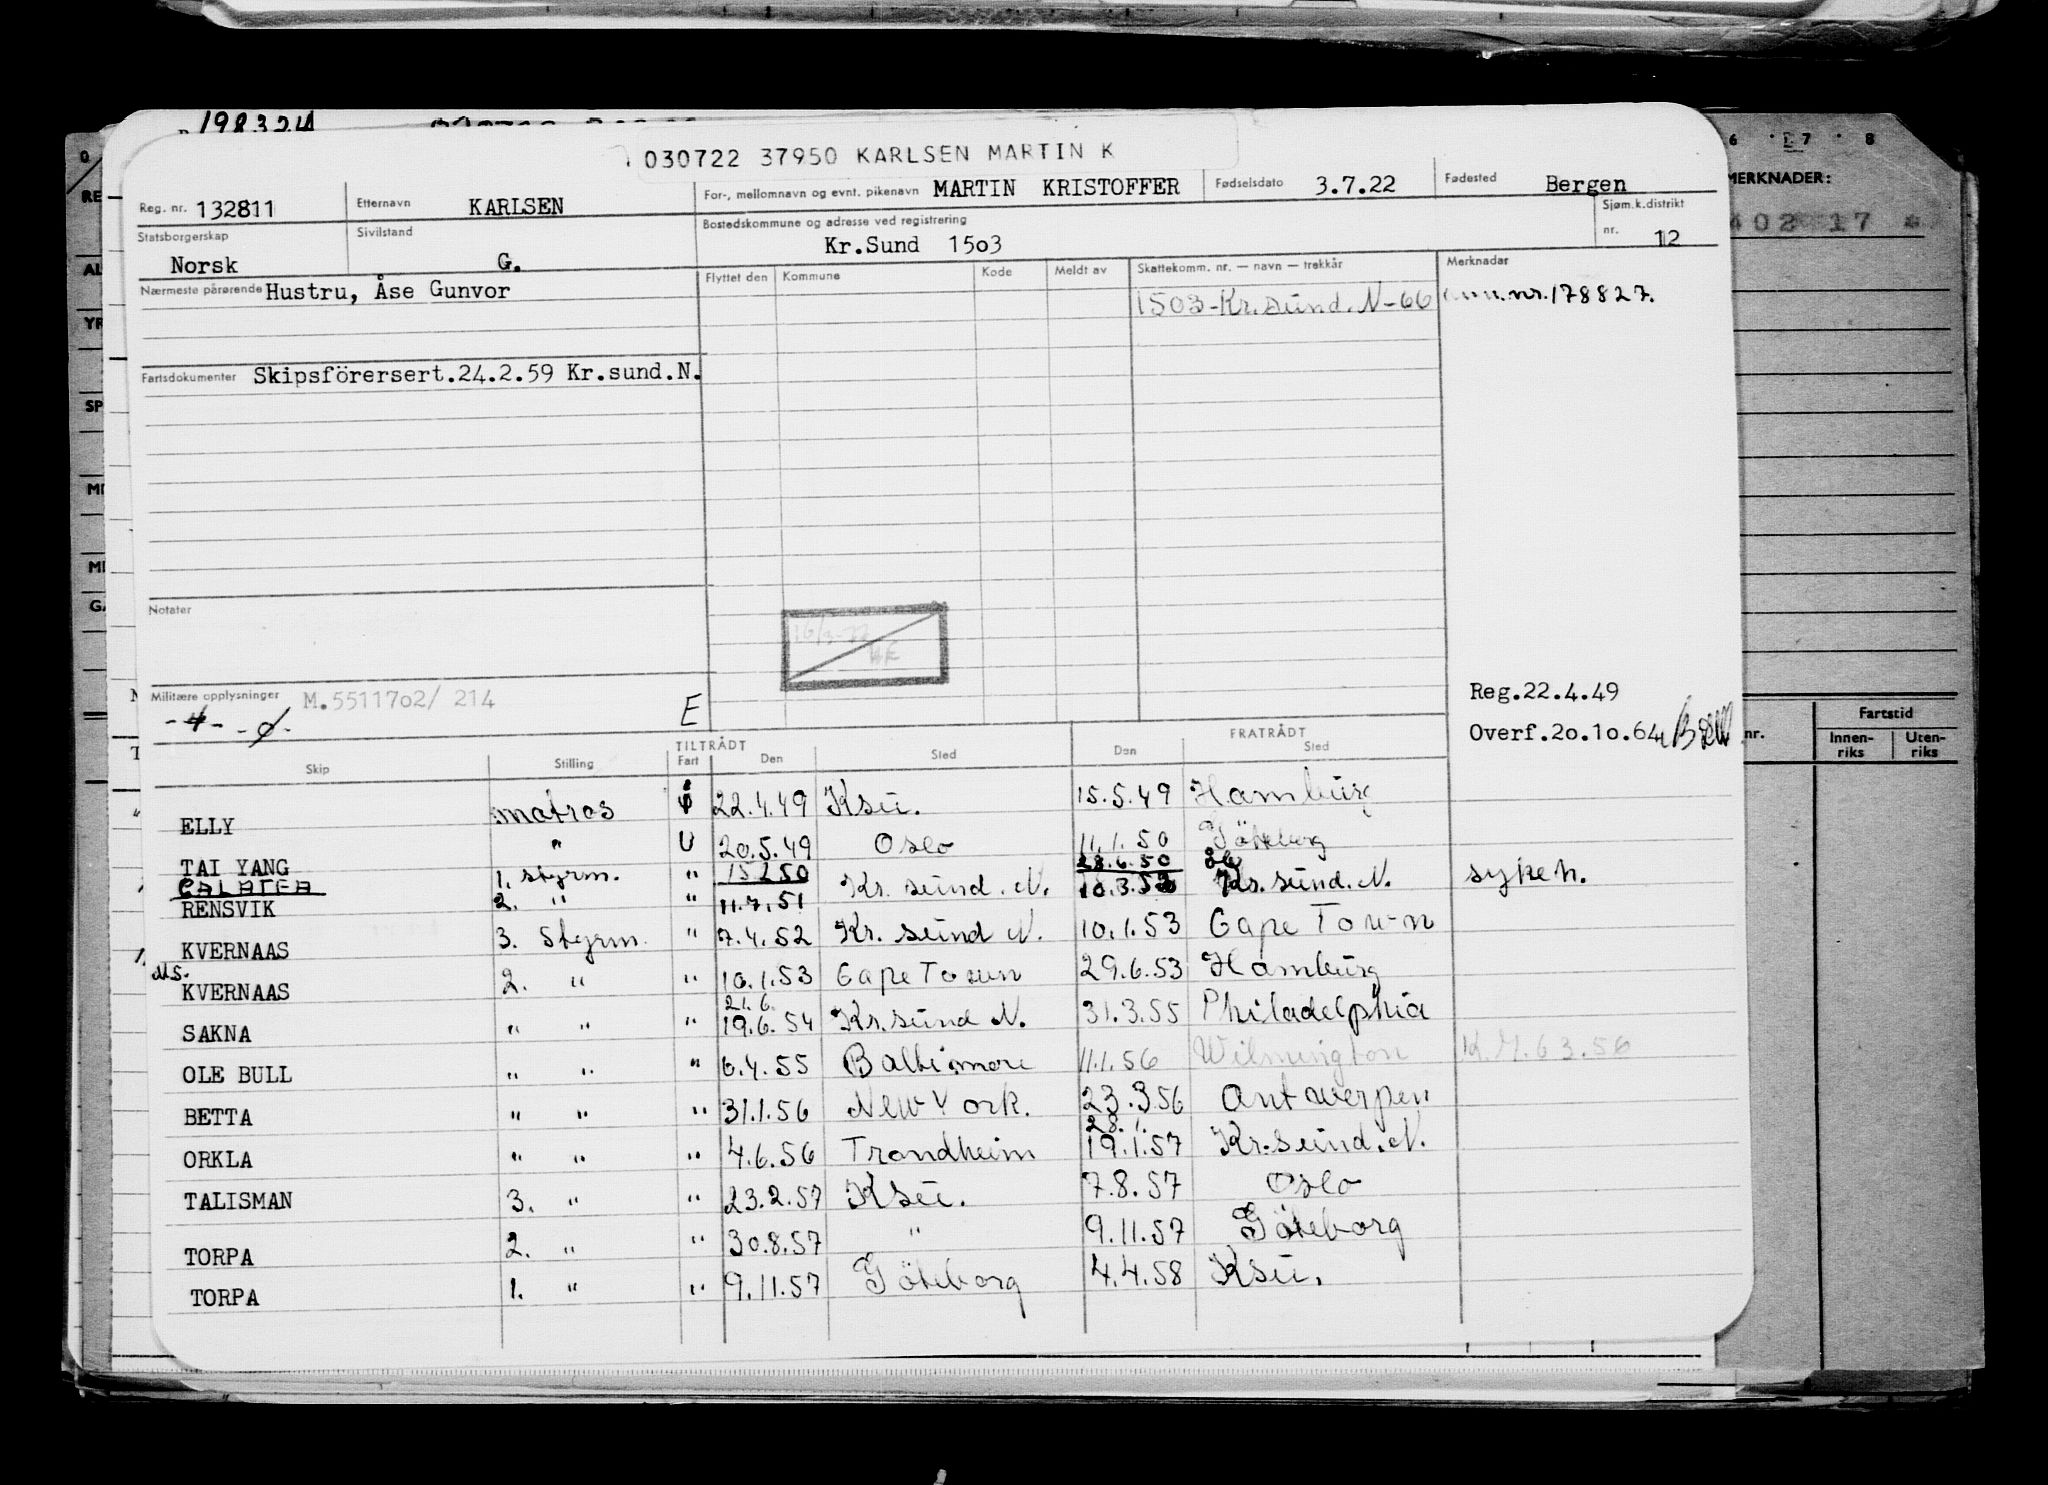 198324
030722 37950 KARLSEN MARTIN K
Reg. nr. 132811 Etternavn KARLSEN For-, mellomnavn og evnt. pikenavn MARTIN KRISTOFFER Fødselsdato 3.7.22 Fødested Bergen
Statsborgerskap Norsk Sivilstand G. Bostedskommune og adresse ved registrering Kr.Sund 1503 Sjøm.k.distrikt nr. 12
Nærmeste pårørende Hustru, Åse Gunvor Flyttet den Kommune Kode Meldt av Skattekomm. nr. — navn — trekkår Merknader
1503-Kr.sund.N-66 nr.178827.
Fartsdokumenter Skipsförersert.24.2.59 Kr.sund.N.
Notater
Militære opplysninger M.5511702/ 214 E
Reg.22.4.49
Overf.20.10.64
TILTRÅDT FRATRÅDT
Skip Stilling Fart Den Sted Den Sted
ELLY matros 22.4.49 Ksu. 15.5.49 Hamburg
TAI YANG " U 20.5.49 Oslo 11.1.50 Göteborg
1. styrm. " 28.6.50
RENSVIK 2. " " 11.7.51 Kr. sund. N. 10.3.52 Kr. sund. N. sykeh.
KVERNAAS 3. Styrm. " 7.4.52 Kr. sund N. 10.1.53 Cape Town
Ms. KVERNAAS 2. " " 10.1.53 Cape Town 29.6.53 Hamburg
21.6.
SAKNA " " " 19.6.54 Kr.sund N. 31.3.55 Philadelphia
OLE BULL " " " 6.4.55 Baltimore 11.1.56 Wilmington K.M.6 3.56
BETTA " " " 31.1.56 New York. 23.3.56 Antwerpen
28.1.
ORKLA " " " 4.6.56 Trondheim 19.1.57 Kr.sund.N.
TALISMAN 3. " " 23.2.57 Ksu. 7.8.57 Oslo
TORPA 2. " " 30.8.57 " 9.11.57 Göteborg
TORPA 1. " " 9.11.57 Göteborg 4.4.58 Ksu.
6 7 8
MERKNADER:
402 17
nr. Fartstid
Innen-riks Uten-riks